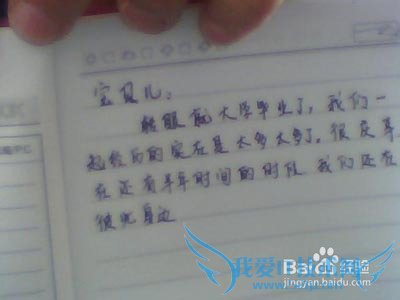 宝贝儿：
转眼就大学毕业了，我们一
起经历的实在是太多太多了，很庆幸，
在还有半年时间的时候 我们还在
彼此身边
Baidu 经验
jingyan.baidu.com